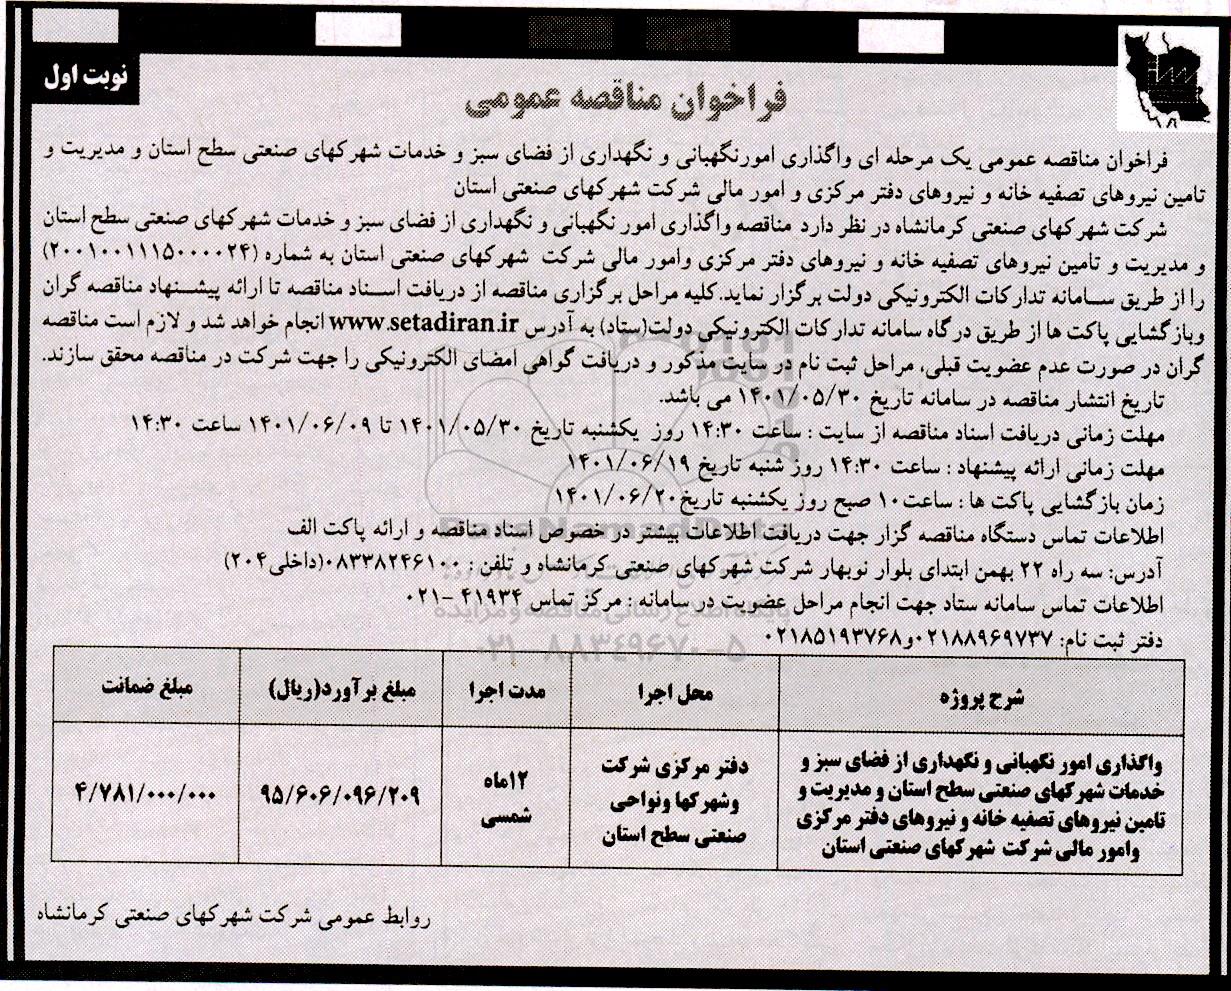 نوبت اول
فراخوان مناقصه عمومی
فراخوان مناقصه عمومی یک مرحله ای واگذاری امورنگهبانی و نگهداری از فضای سبز و خدمات شهرکهای صنعتی سطح استان و مدیریت و
تامین نیروهای تصفیه خانه و نیروهای دفتر مرکزی و امور مالی شرکت شهرکهای صنعتی استان
شرکت شهرکهای صنعتی کرمانشاه در نظر دارد مناقصه واگذاری امور نگهبانی و نگهداری از فضای سبز و خدمات شهرکهای صنعتی سطح استان
و مدیریت و تامین نیروهای تصفیه خانه و نیروهای دفتر مرکزی وامور مالی شرکت شهرکهای صنعتی استان به شماره (۲۰۰۱۰۰۱۱۱۵۰۰۰۰۲۴)
را از طریق سامانه تدارکات الکترونیکی دولت برگزار نماید.کلیه مراحل برگزاری مناقصه از دریافت اسناد مناقصه تا ارائه پیشنهاد مناقصه گران
وبازگشایی پاکت ها از طریق درگاه سامانه تدارکات الکترونیکی دولت(ستاد) به آدرس www.setadiran.ir انجام خواهد شد و لازم است مناقصه
گران در صورت عدم عضویت قبلی، مراحل ثبت نام در سایت مذکور و دریافت گواهی امضای الکترونیکی را جهت شرکت در مناقصه محقق سازند.
تاریخ انتشار مناقصه در سامانه تاریخ ۱۴۰۱/۰۵/۳۰ می باشد.
مهلت زمانی دریافت اسناد مناقصه از سایت : ساعت ۱۴:۳۰ روز یکشنبه تاریخ ۱۴۰۱/۰۵/۳۰ تا ۱۴۰۱/۰۶/۰۹ ساعت ۱۴:۳۰
مهلت زمانی ارائه پیشنهاد : ساعت ۱۴:۳۰ روز شنبه تاریخ ۱۴۰۱/۰۶/۱۹
زمان بازگشایی پاکت ها : ساعت۱۰ صبح روز یکشنبه تاریخ۱۴۰۱/۰۶/۲۰
اطلاعات تماس دستگاه مناقصه گزار جهت دریافت اطلاعات بیشتر در خصوص اسناد مناقصه و ارائه پاکت الف
آدرس: سه راه ۲۲ بهمن ابتدای بلوار نوبهار شرکت شهرکهای صنعتی کرمانشاه و تلفن : ۰۸۳۳۸۲۴۶۱۰۰(داخلی۲۰۴)
اطلاعات تماس سامانه ستاد جهت انجام مراحل عضویت در سامانه : مرکز تماس ۴۱۹۳۴ -۰۲۱
دفتر ثبت نام: ۰۲۱۸۸۹۶۹۷۳۷و۰۲۱۸۵۱۹۳۷۶۸
۰۲۱-۸۸۳۴۹۶۷۰-۵
شرح پروژه محل اجرا مدت اجرا مبلغ برآورد(ریال) مبلغ ضمانت
واگذاری امور نگهبانی و نگهداری از فضای سبز و
خدمات شهرکهای صنعتی سطح استان و مدیریت و
تامین نیروهای تصفیه خانه و نیروهای دفتر مرکزی
وامور مالی شرکت شهرکهای صنعتی استان
دفتر مرکزی شرکت
وشهرکها ونواحی
صنعتی سطح استان
۱۲ماه
شمسی
۹۵/۶۰۶/۰۹۶/۲۰۹
۴/۷۸۱/۰۰۰/۰۰۰
روابط عمومی شرکت شهرکهای صنعتی کرمانشاه